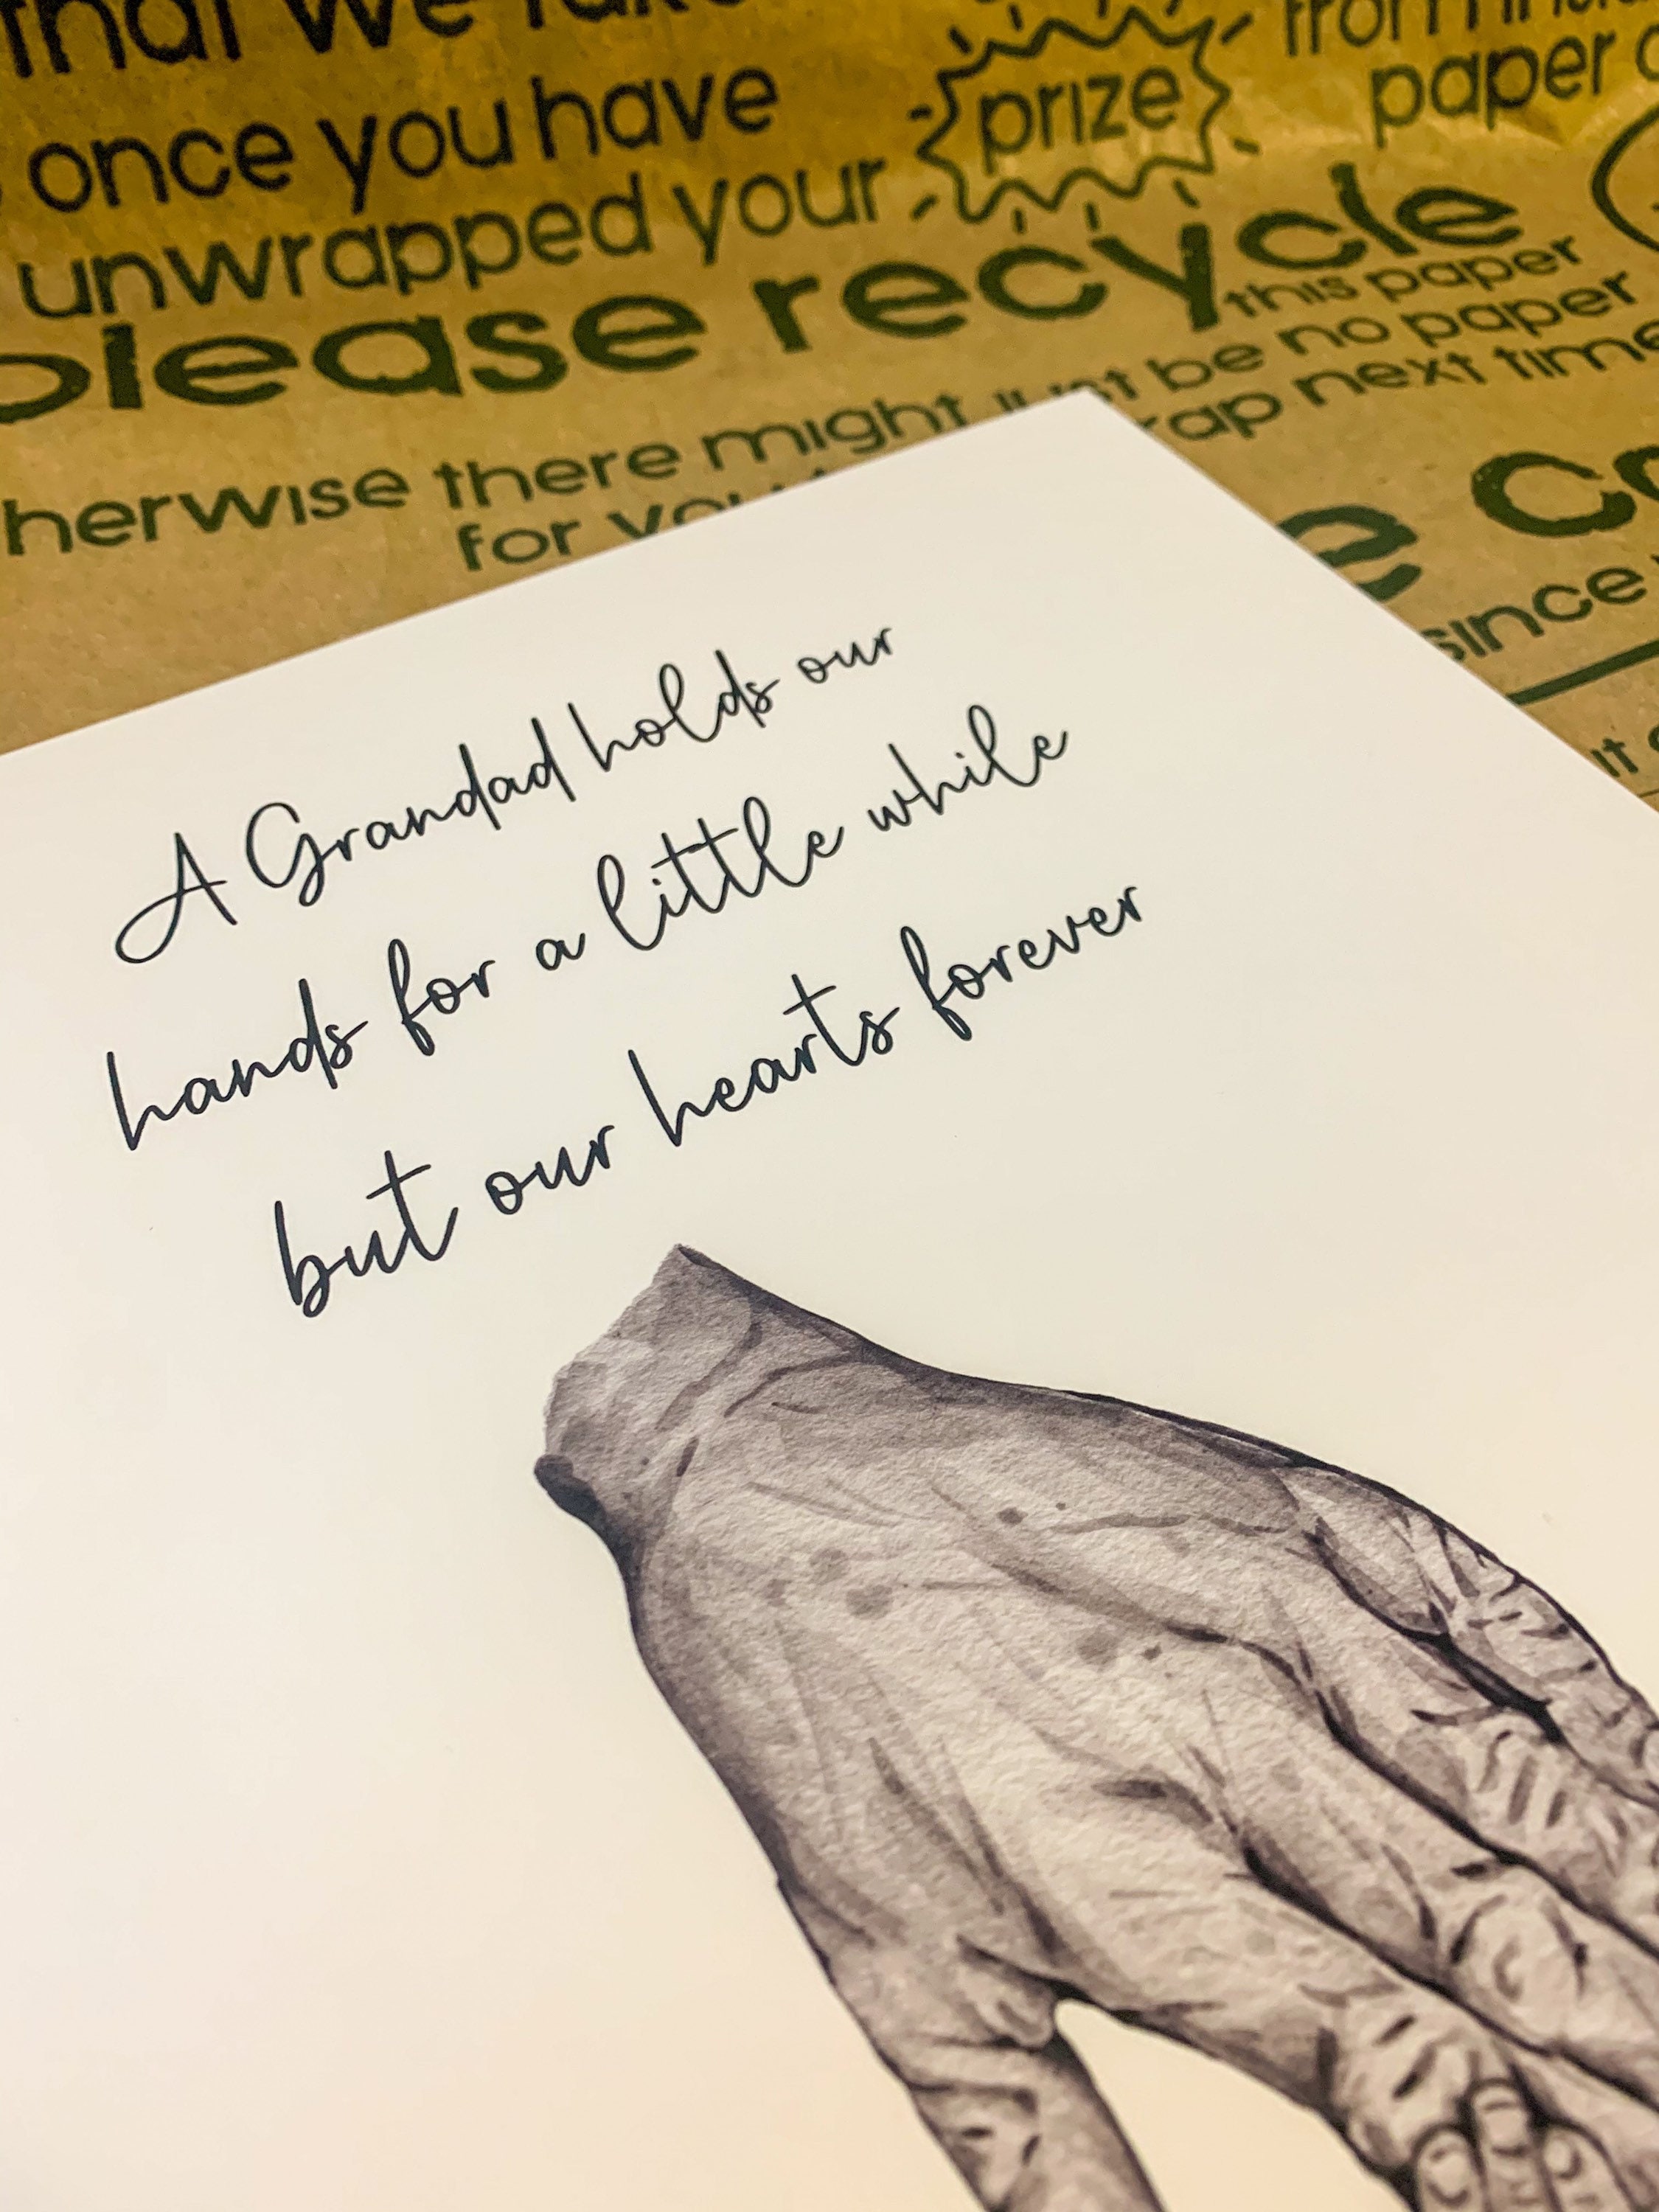 that we
once you have
unwrapped your
prize
paper
please recycle
this paper
otherwise there might just be no paper
for you wrap next time
since
it
A Grandad holds our
hands for a little while
but our hearts forever